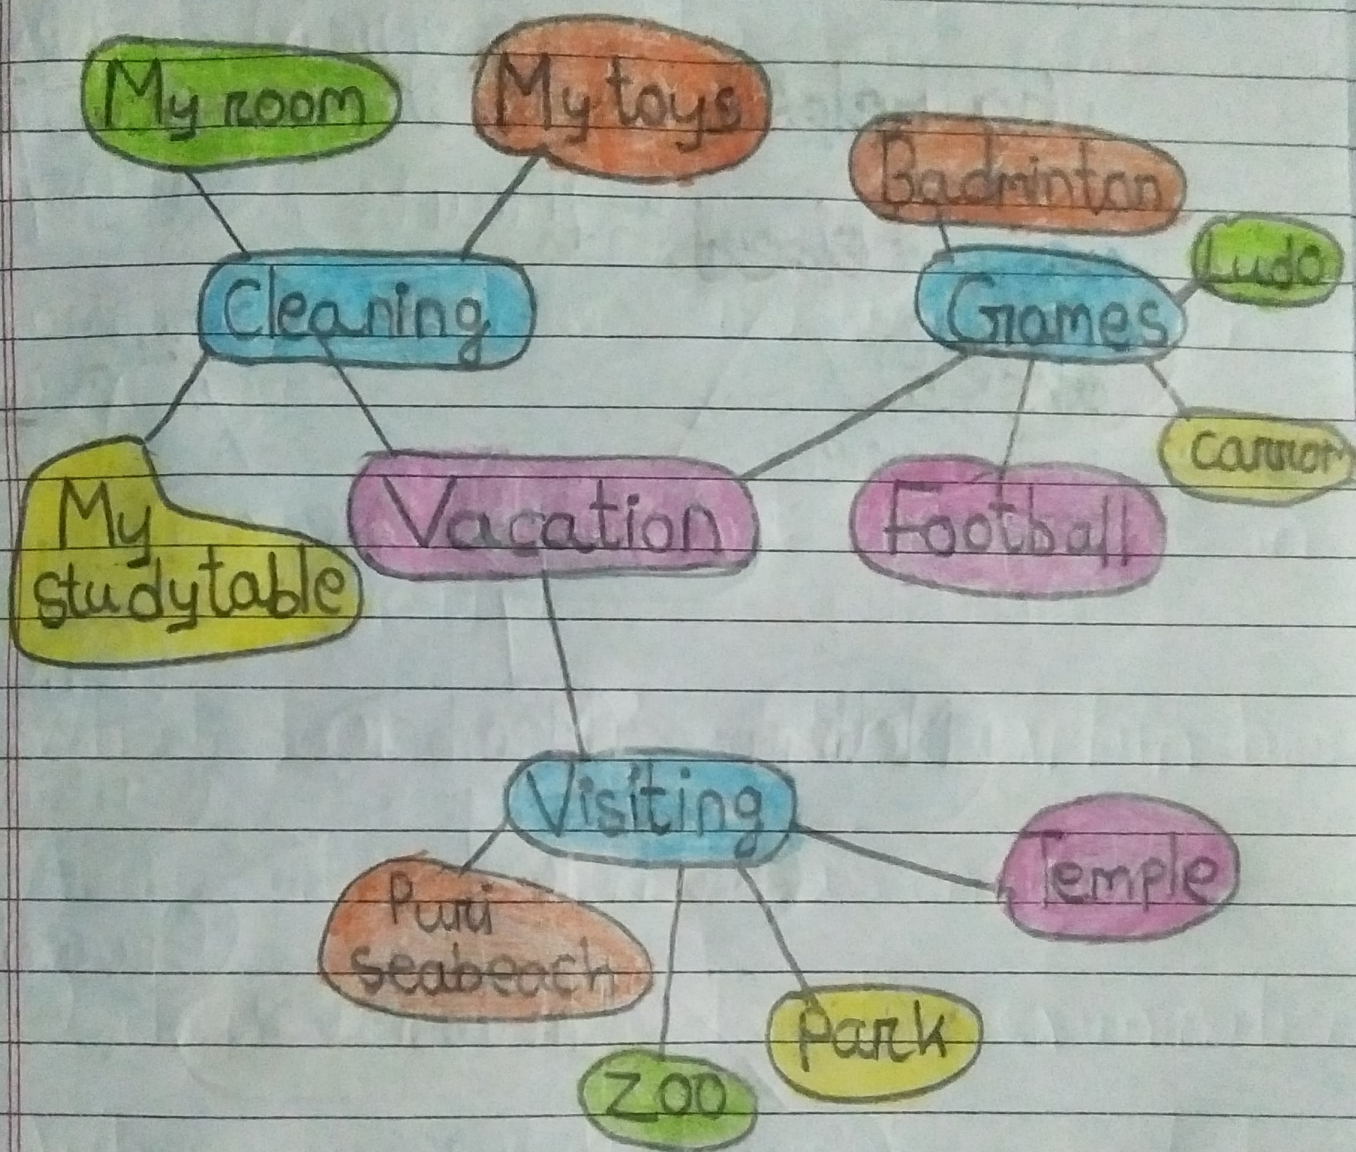 My room
My toys
Badminton
Ludo
Games
Cleaning
carrom
My
studytable
Vacation
Football
Visiting
Temple
Puri
seabeach
Park
Zoo